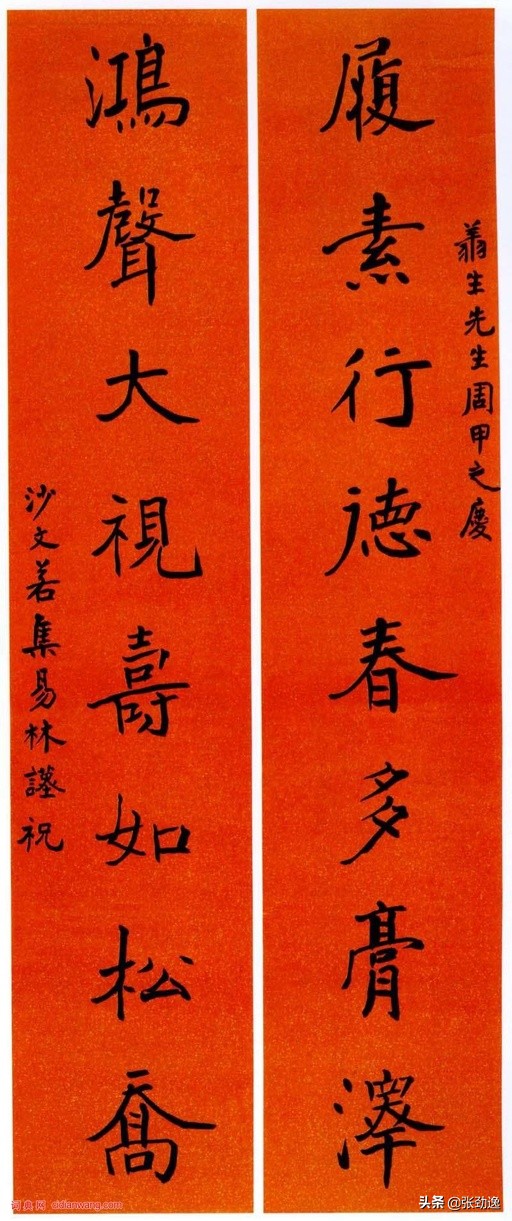 蕣生先生周甲之慶
履素行德春多膏澤
鴻聲大視壽如松喬
沙文若集易林謹祝
词典网·cidianwang.com
头条 @张劲逸